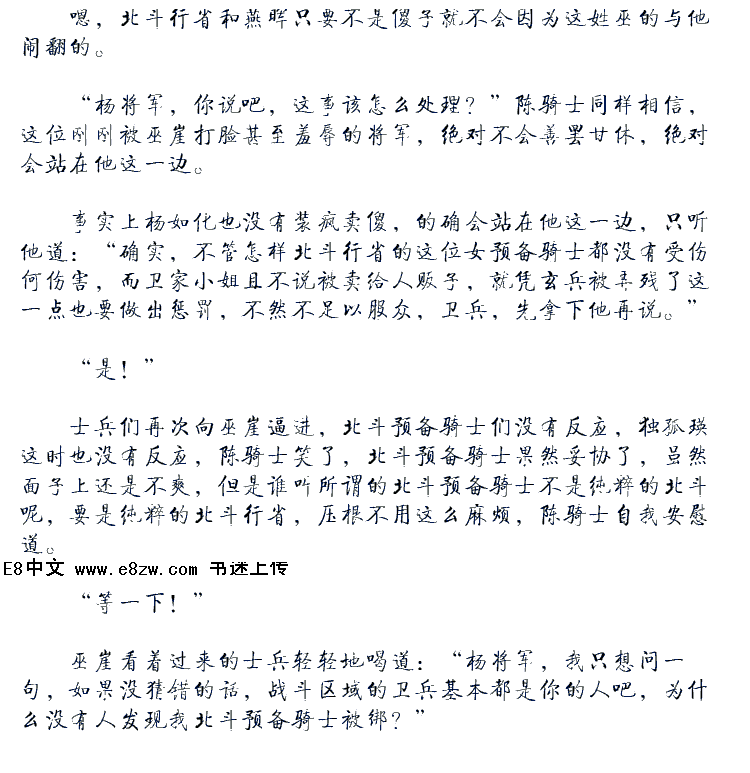 嗯，北斗行省和燕晖只要不是傻子就不会因为这姓巫的与他
闹翻的。
“杨将军，你说吧，这事该怎么处理？”陈骑士同样相信，
这位刚刚被巫崖打脸甚至羞辱的将军，绝对不会善罢甘休，绝对
会站在他这一边。
事实上杨如化也没有装疯卖傻，的确会站在他这一边，只听
他道：“确实，不管怎样北斗行省的这位女预备骑士都没有受伤
何伤害，而卫家小姐且不说被卖给人贩子，就凭玄兵被弄残了这
一点也要做出惩罚，不然不足以服众，卫兵，先拿下他再说。”
“是！”
士兵们再次向巫崖逼进，北斗预备骑士们没有反应，独孤瑛
这时也没有反应，陈骑士笑了，北斗预备骑士果然妥协了，虽然
面子上还是不爽，但是谁听所谓的北斗预备骑士不是纯粹的北斗
呢，要是纯粹的北斗行省，压根不用这么麻烦，陈骑士自我安慰
道。
E8中文 www.e8zw.com 书迷上传
“等一下！”
巫崖看着过来的士兵轻轻地喝道：“杨将军，我只想问一
句，如果没猜错的话，战斗区域的卫兵基本都是你的人吧，为什
么没有人发现我北斗预备骑士被绑？”